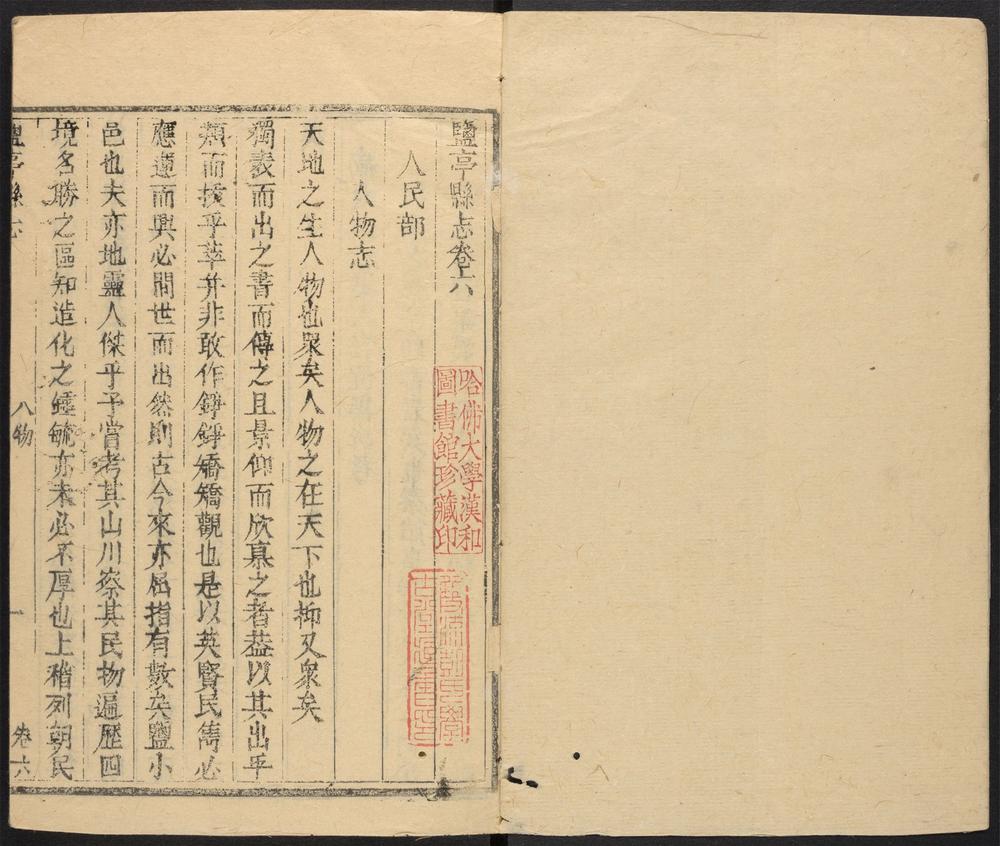 鹽亭縣志卷六
人民部
人物志
天地之生人物也衆矣人物之在天下也抑又衆矣
獨表而出之書而傳之且景仰而欣慕之者葢以其出乎
類而拔乎萃并非敢作錚錚矯矯觀也是以英賢民雋必
應運而興必間世而出然則古今來亦屈指有數矣鹽小
邑也夫亦地靈人傑乎予嘗考其山川察其民物遍歷四
境名勝之區知造化之鍾毓亦未必不厚也上稽列朝民
鹽亭縣志 人物 一 卷六
哈佛大學漢和
圖書館珍藏印